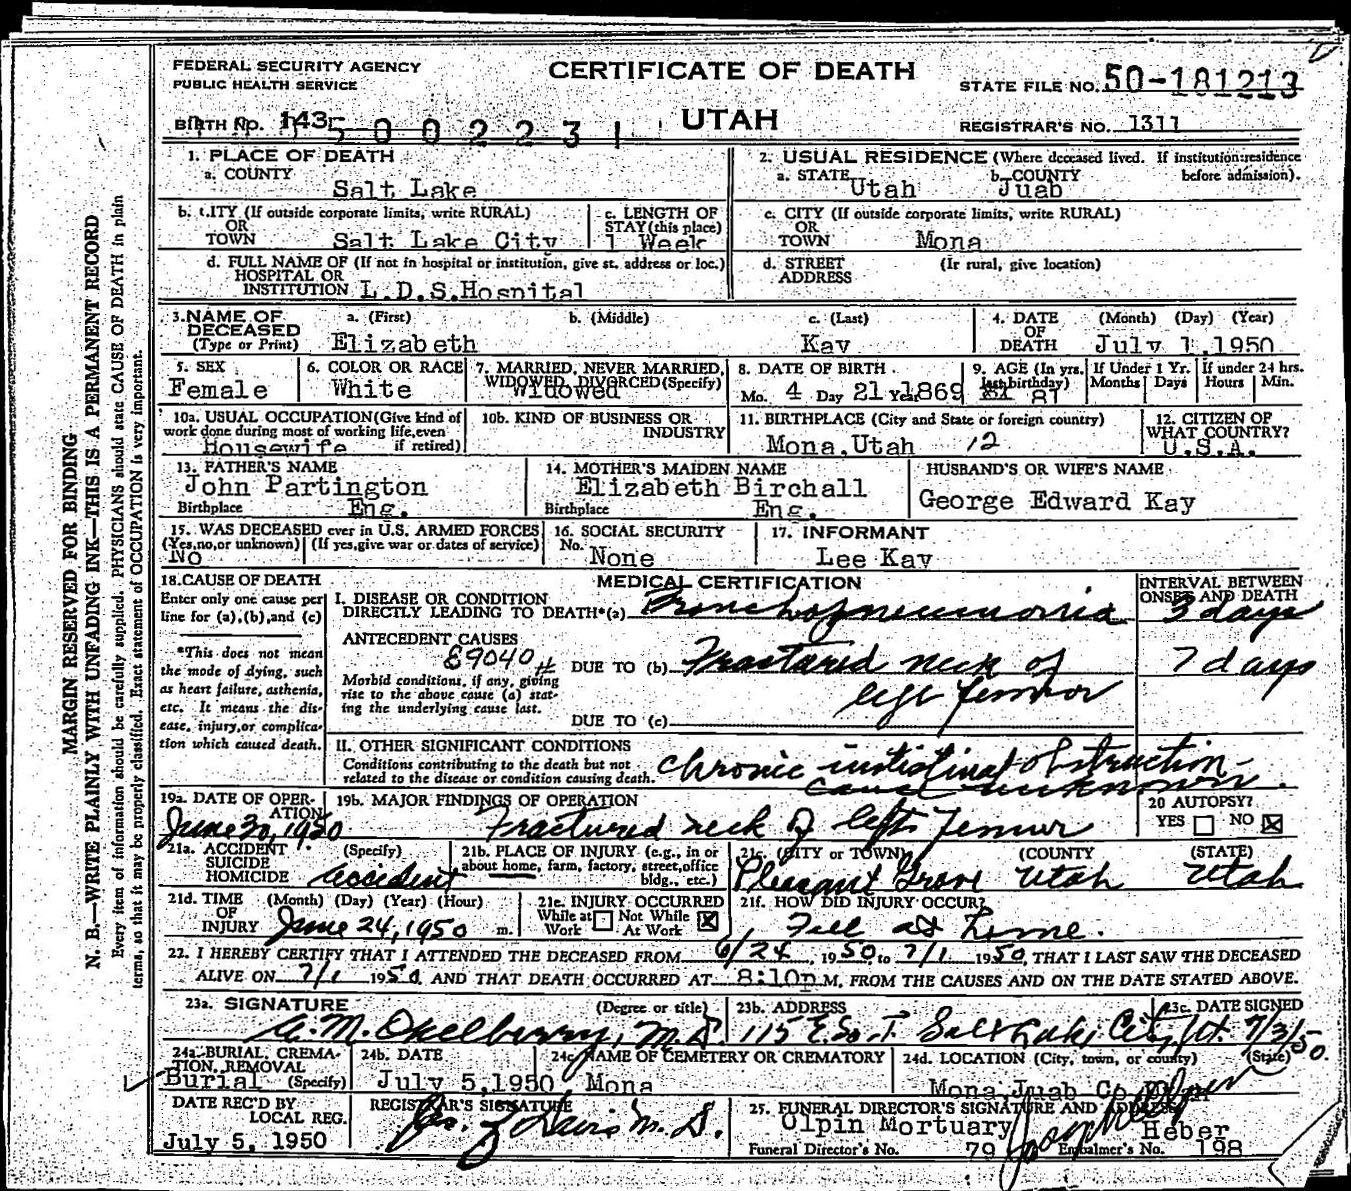 FEDERAL SECURITY AGENCY
PUBLIC HEALTH SERVICE
CERTIFICATE OF DEATH
STATE FILE NO. 50-181213
BIRTH NO. 143
5002231
UTAH
REGISTRAR'S NO. 1311
1. PLACE OF DEATH
a. COUNTY
Salt Lake
2. USUAL RESIDENCE (Where deceased lived. If institution:residence before admission).
a. STATE Utah b. COUNTY Juab
b. CITY (If outside corporate limits, write RURAL)
OR
TOWN Salt Lake City
c. LENGTH OF
STAY (this place)
1 Week
c. CITY (If outside corporate limits, write RURAL)
OR
TOWN Mona
d. FULL NAME OF (If not in hospital or institution, give st. address or loc.)
HOSPITAL OR
INSTITUTION L.D.S.Hospital
d. STREET (If rural, give location)
ADDRESS
3.NAME OF DECEASED
(Type or Print)
a. (First) b. (Middle) c. (Last)
Elizabeth Kay
4. DATE OF DEATH (Month) (Day) (Year)
July 1,1950
5. SEX
Female
6. COLOR OR RACE
White
7. MARRIED, NEVER MARRIED,
WIDOWED, DIVORCED (Specify)
Widowed
8. DATE OF BIRTH
Mo. 4 Day 21 Year 1869
9. AGE (In yrs. last birthday)
81
If Under 1 Yr.
Months Days
If under 24 hrs.
Hours Min.
10a. USUAL OCCUPATION (Give kind of
work done during most of working life, even
if retired)
Housewife
10b. KIND OF BUSINESS OR
INDUSTRY
11. BIRTHPLACE (City and State or foreign country)
Mona,Utah 12
12. CITIZEN OF
WHAT COUNTRY?
U.S.A.
13. FATHER'S NAME
John Partington
Birthplace Eng.
14. MOTHER'S MAIDEN NAME
Elizabeth Birchall
Birthplace Eng.
HUSBAND'S OR WIFE'S NAME
George Edward Kay
15. WAS DECEASED ever in U.S. ARMED FORCES
(Yes,no,or unknown) (If yes,give war or dates of service)
No
16. SOCIAL SECURITY
No.
None
17. INFORMANT
Lee Kay
18.CAUSE OF DEATH
Enter only one cause per
line for (a),(b),and (c)
*This does not mean
the mode of dying, such
as heart failure, asthenia,
etc. It means the dis-
ease, injury,or complica-
tion which caused death.
MEDICAL CERTIFICATION
INTERVAL BETWEEN
ONSET AND DEATH
I. DISEASE OR CONDITION
DIRECTLY LEADING TO DEATH*(a) Bronchopneumonia 3 days
ANTECEDENT CAUSES
E9040
DUE TO (b) Fractured neck of 7 days
left femur
Morbid conditions, if any, giving
rise to the above cause (a) stat-
ing the underlying cause last.
DUE TO (c)
II. OTHER SIGNIFICANT CONDITIONS
Conditions contributing to the death but not
related to the disease or condition causing death.
Chronic instistinal obstruction-
cause unknown.
19a. DATE OF OPER-
ATION
June 30, 1950
19b. MAJOR FINDINGS OF OPERATION
Fractured neck of left femur
20 AUTOPSY?
YES NO X
21a. ACCIDENT (Specify)
SUICIDE
HOMICIDE
accident
21b. PLACE OF INJURY (e.g., in or
about home, farm, factory, street,office
bldg., etc.)
21c. (CITY or TOWN) (COUNTY (STATE)
Pleasant Grove Utah Utah
21d. TIME (Month) (Day) (Year) (Hour)
OF
INJURY June 24, 1950 m.
21e. INJURY OCCURRED
While at Work Not While At Work X
21f. HOW DID INJURY OCCUR?
Fell at home.
22. I HEREBY CERTIFY THAT I ATTENDED THE DECEASED FROM 6/24, 1950, to 7/1 1950, THAT I LAST SAW THE DECEASED
ALIVE ON 7/1 1950 AND THAT DEATH OCCURRED AT 8:10p M, FROM THE CAUSES AND ON THE DATE STATED ABOVE.
23a. SIGNATURE (Degree or title)
A. M. Okelberry, M.D.
23b. ADDRESS
115 E. So. T. Salt Lake City, Ut.
23c. DATE SIGNED
7/3/50.
24a. BURIAL, CREMA-
TION, REMOVAL
Burial (Specify)
24b. DATE
July 5,1950
24c NAME OF CEMETERY OR CREMATORY
Mona
24d. LOCATION (City, town, or county) (State)
Mona,Juab Co.
DATE REC'D BY
LOCAL REG.
July 5, 1950
REGISTRAR'S SIGNATURE
Davis M.D.
25. FUNERAL DIRECTOR'S SIGNATURE AND ADDRESS
Olpin Mortuary Heber
Funeral Director's No. 79 Embalmer's No. 198
MARGIN RESERVED FOR BINDING
N. B.—WRITE PLAINLY WITH UNFADING INK—THIS IS A PERMANENT RECORD
Every item of information should be carefully supplied. PHYSICIANS should state CAUSE OF DEATH in plain
terms, so that it may be properly classified. Exact statement of OCCUPATION is very important.